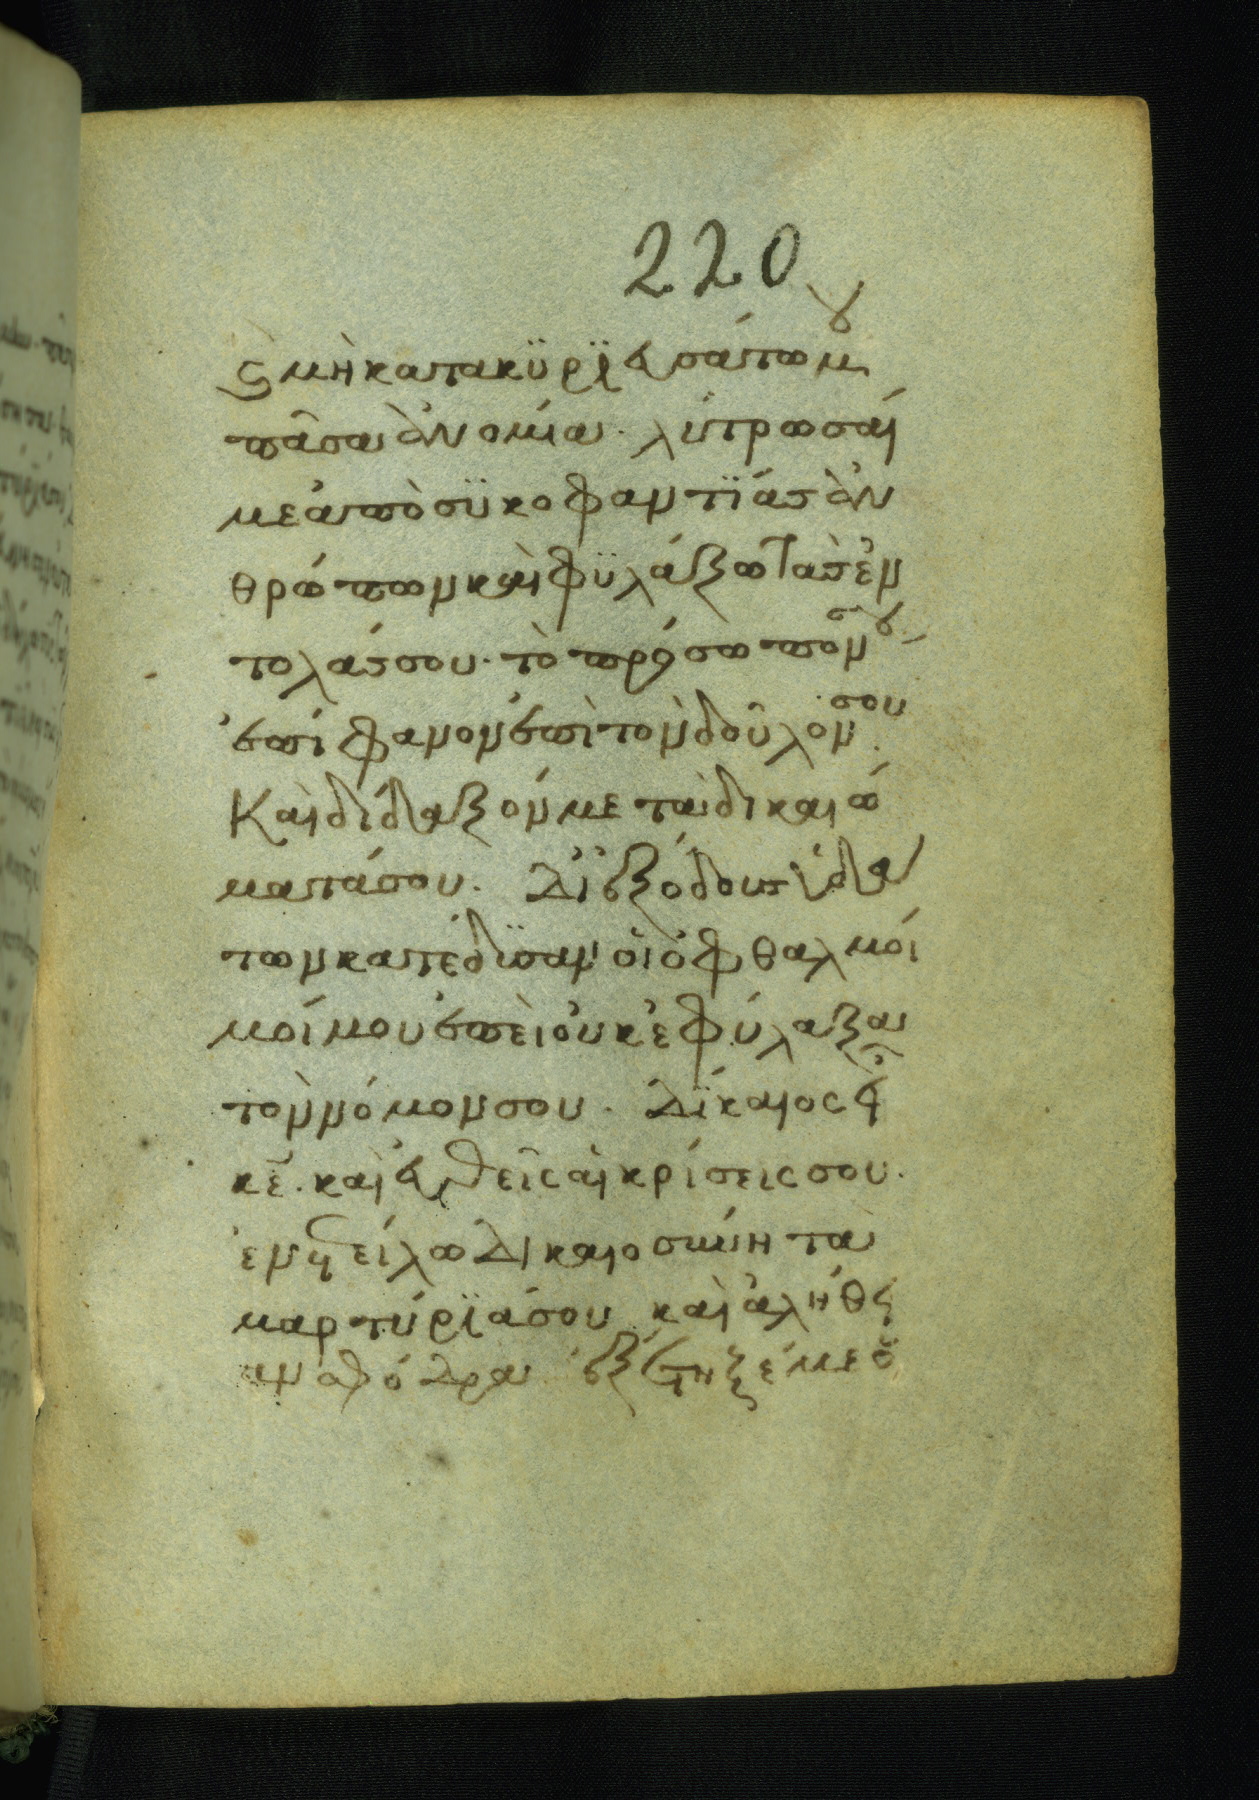 220
ϛ μὴ κατακϋρϊευσάτω μου
πᾶσα ἀνομία. λύτρωσαί
με ἀπὸ σϋκοφαντϊάς ἀν
θρώπων καὶ φϋλάξω τὰς ἐν
τολάς σου. τὸ πρόσωπόν σου
ἐπίφανον ἐπὶ τον δοῦλόν σου
Καὶ δίδαξόν με τὰ δικαιώ
ματά σου. Διεξόδους ὑδά
των κατέδϊσαν οἱ ὀφθαλμοί
μοί μου ἐπεὶ οὐκ ἐφύλαξα
τὸν νόμον σου. Δϊκαιος εἶ
κε. καὶ εὐθεῖς αἱ κρίσεις σου.
ἐνετείλω Δικαιοσύνη τὰ
μαρτύρϊά σου καὶ ἀλήθει
αν σφόδρα ἐξέτηξέ με ὁ